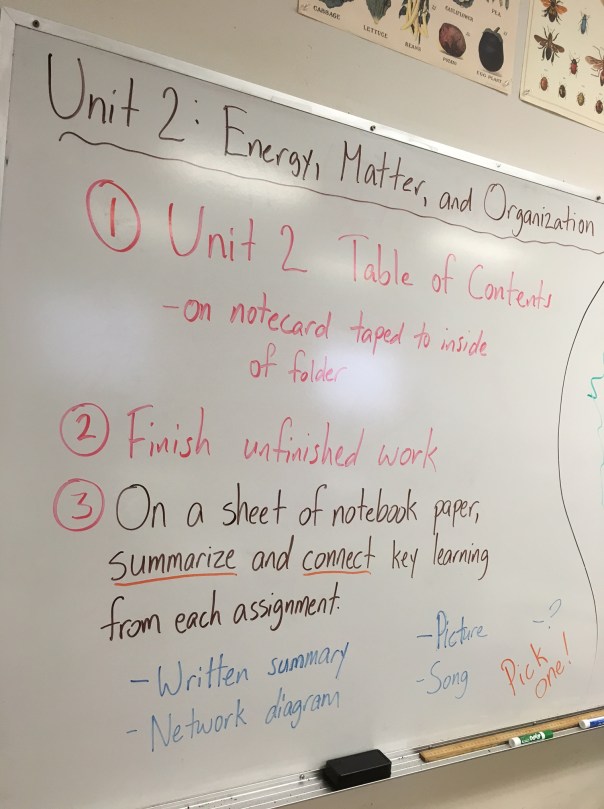 CABBAGE
LETTUCE
BEANS
CAULIFLOWER
PEA
EGG PLANT
Unit 2: Energy, Matter, and Organization
① Unit 2 Table of Contents
-on notecard taped to inside
of folder
② Finish unfinished work
③ On a sheet of notebook paper,
summarize and connect key learning
from each assignment.
- Written summary
- Network diagram
- Picture
- Song
- ?
Pick
one!